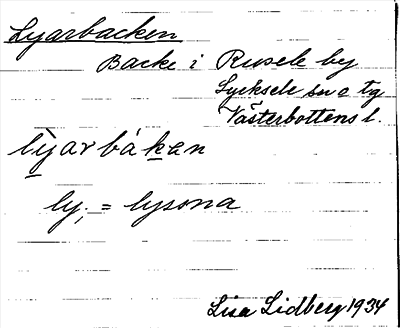 Lyarbacken
Backe i Rusele by
Lycksele sn o tg
Västerbottens l.
lyar bákan
ly, = lysona
Lisa Lidberg 1934